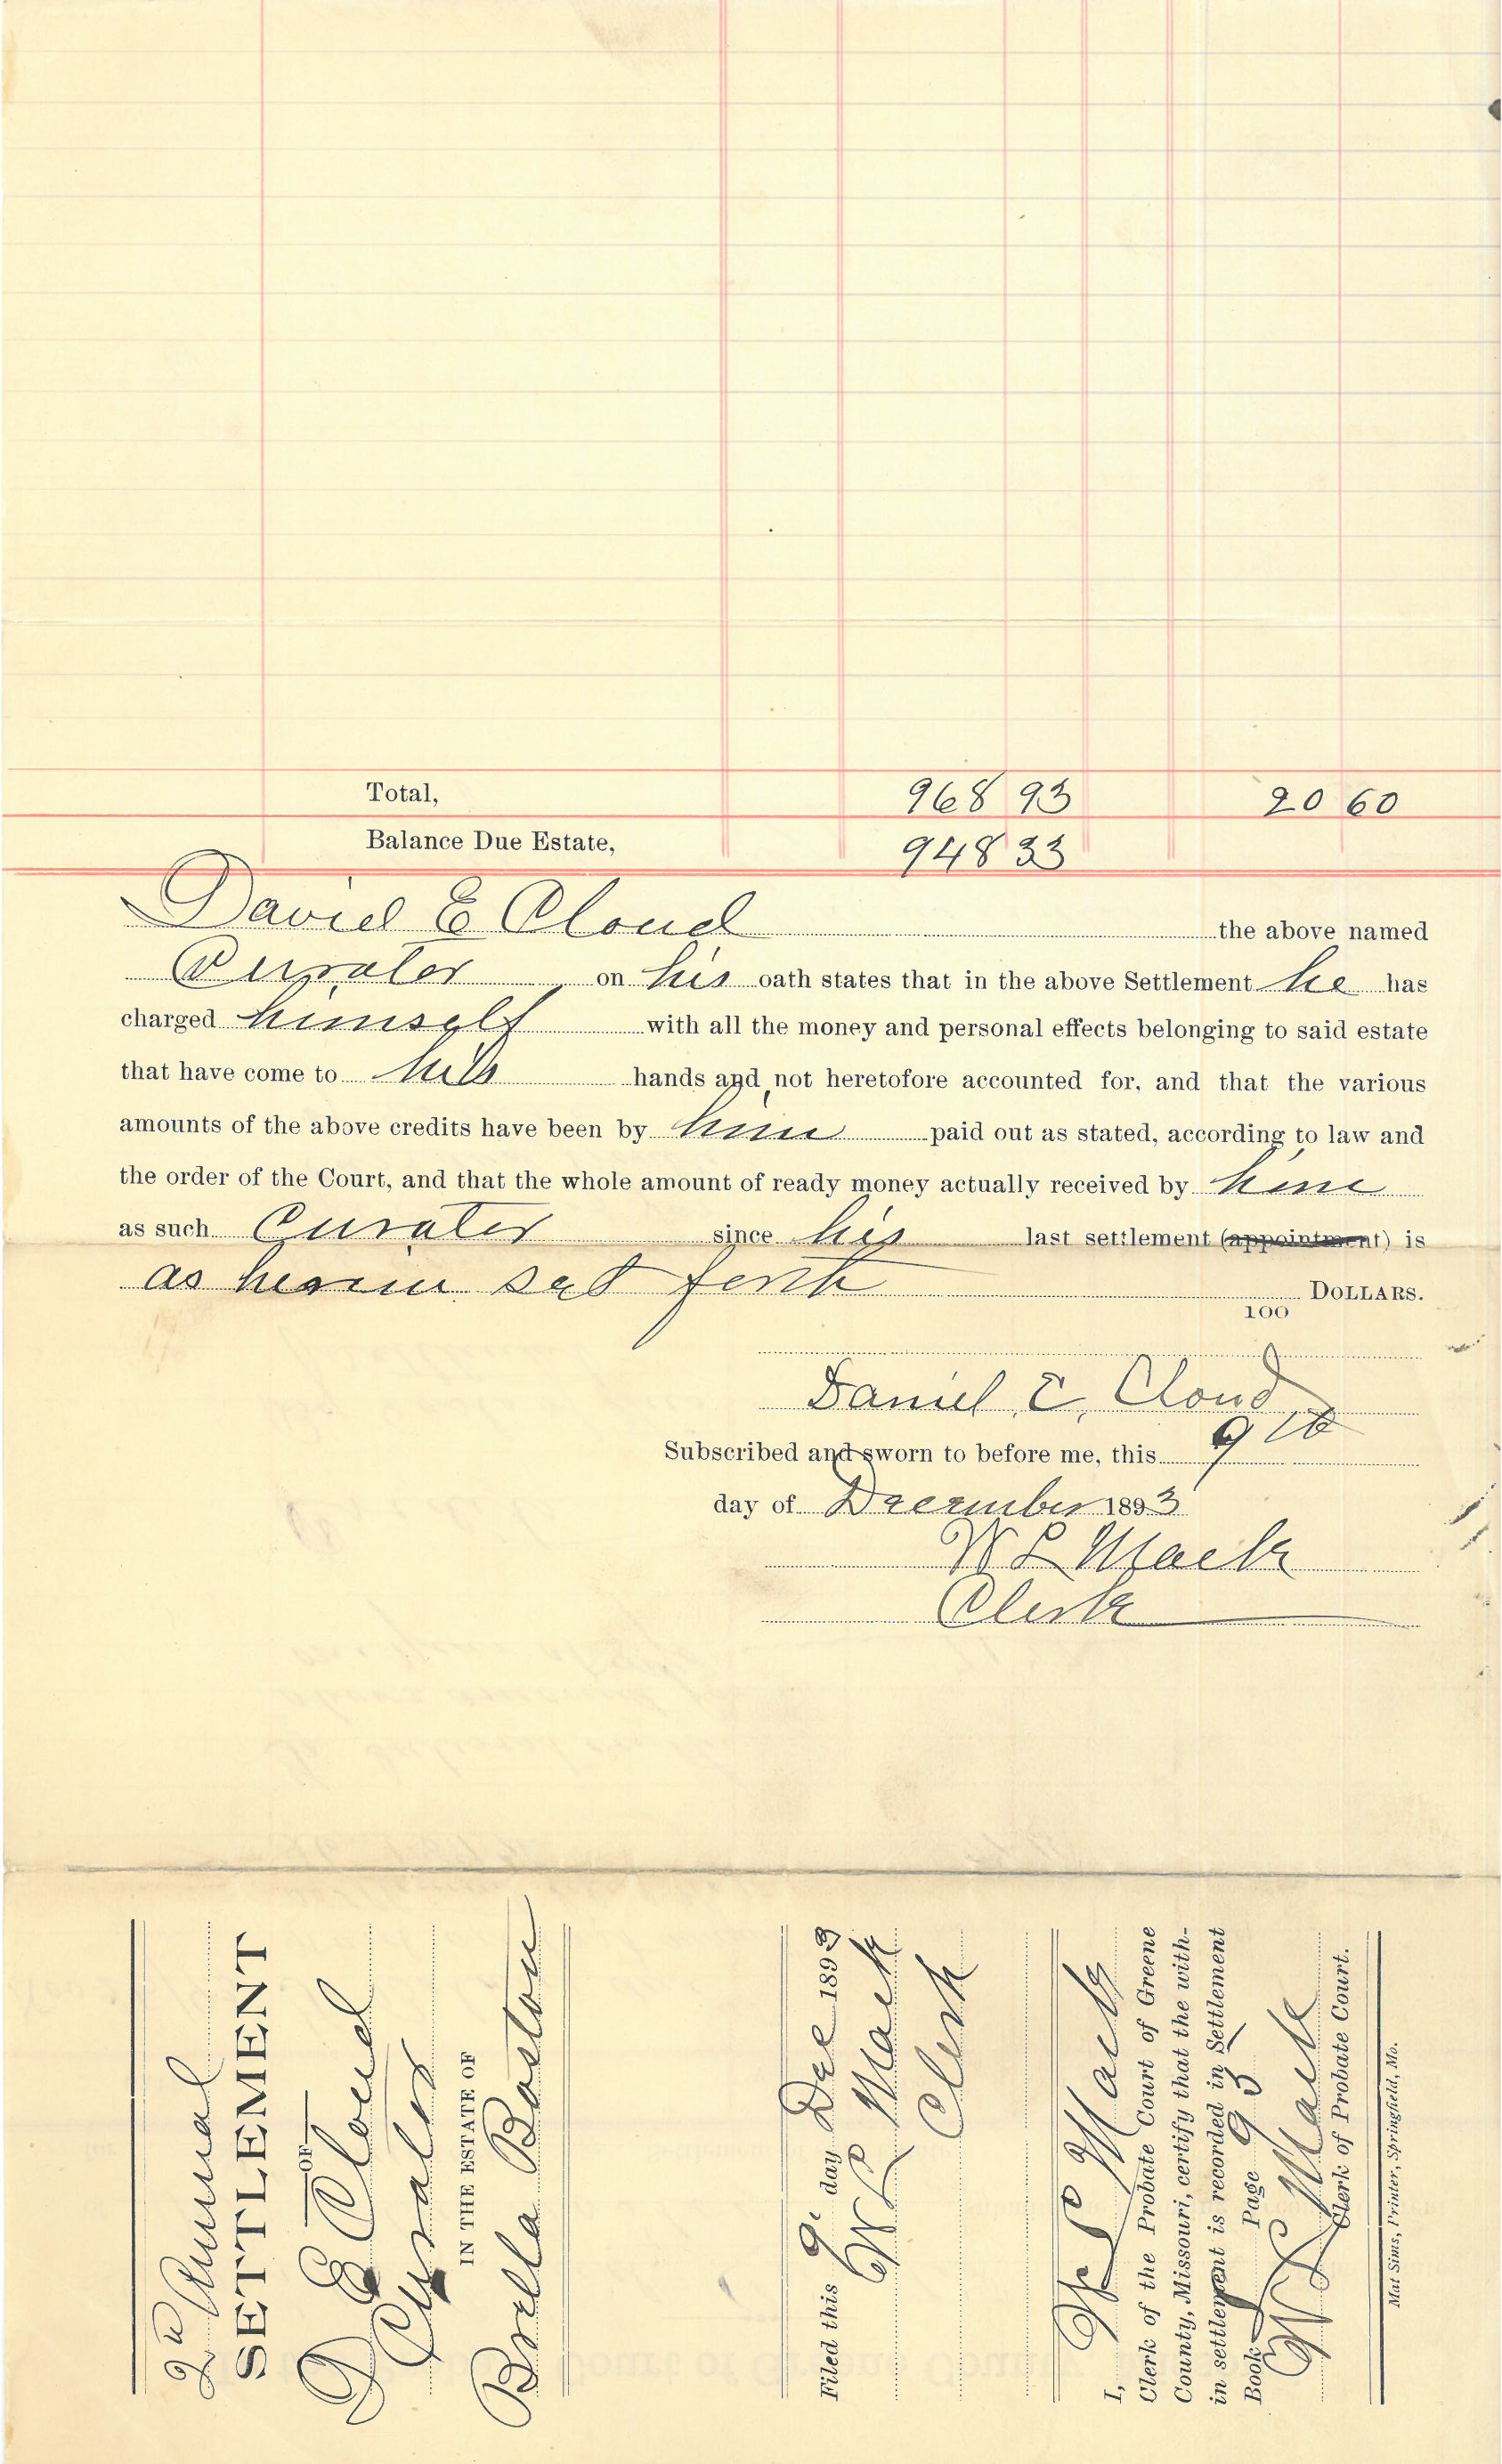 Total, 968 93 20 60
Balance Due Estate, 948 33
David E Cloud the above named
Curator on his oath states that in the above Settlement he has
charged himself with all the money and personal effects belonging to said estate
that have come to his hands and not heretofore accounted for, and that the various
amounts of the above credits have been by him paid out as stated, according to law and
the order of the Court, and that the whole amount of ready money actually received by him
as such Curator since his last settlement (appointment) is
as herein set forth DOLLARS.
100
Daniel E. Cloud
Subscribed and sworn to before me, this 9th
day of December 1893
W L Mack
Clerk
2d Annual
SETTLEMENT
OF
D E Cloud
Curator
IN THE ESTATE OF
Boston
Filed this 9. day Dec 1893
W L Mack
Clerk
I, W L Mack
Clerk of the Probate Court of Greene
County, Missouri, certify that the with-
in settlement is recorded in Settlement
Book Page 95
W L Mack
Clerk of Probate Court.
Mat Sims, Printer, Springfield, Mo.